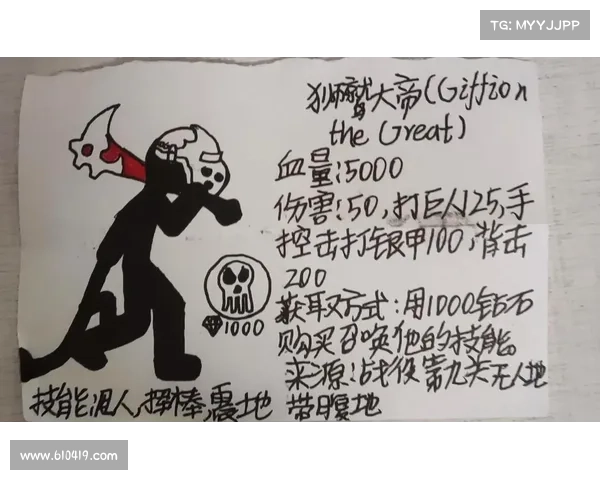 TG: MYYJJPP
狮鹫大帝(Giffion
the Great)
血量:5000
伤害:50,打巨人125,手
控击打铠甲100,背击
200
获取方式:用1000钻石
购买召唤他的技能
来源:战役第九关无人地
带腹地
1000
技能:泥人,挥棒,震地
www.610419.com